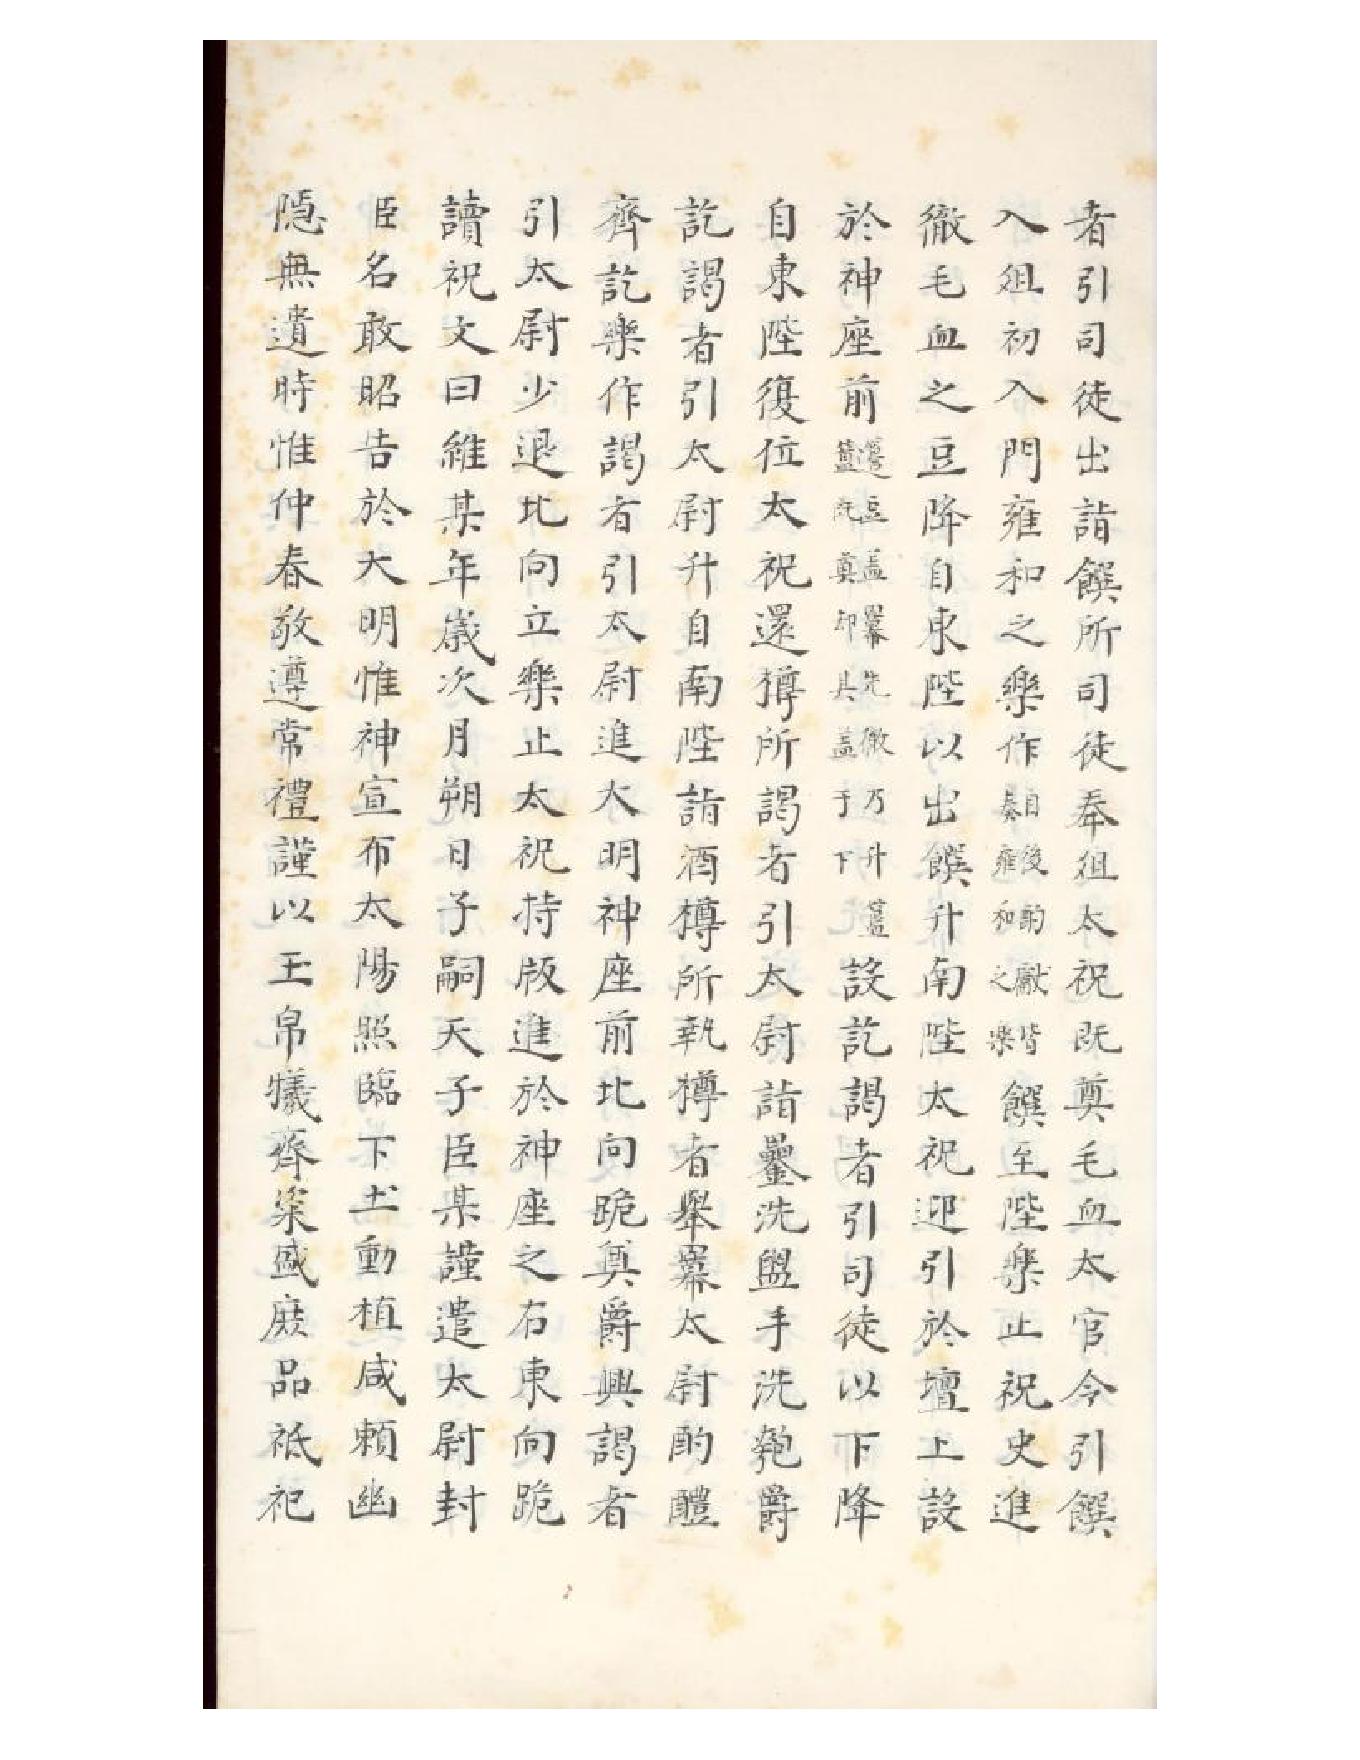 者引司徒出詣饌所司徒奉俎太祝既奠毛血太官令引饌
入俎初入門雍和之樂作自後酌獻皆奏雍和之樂饌至陛樂止祝史進
徹毛血之豆降自東陛以出饌升南陛太祝迎引於壇上設
於神座前籩豆蓋羃先徹乃升簠簋既奠却其蓋于下設訖謁者引司徒以下降
自東陛復位太祝還樽所謁者引太尉詣罍洗盥手洗匏爵
訖謁者引太尉升自南陛詣酒樽所執樽者舉羃太尉酌醴
齊訖樂作謁者引太尉進大明神座前北向跪奠爵興謁者
引太尉少退北向立樂止太祝持版進於神座之右東向跪
讀祝文曰維某年歲次月朔日子嗣天子臣某謹遣太尉封
臣名敢昭告於大明惟神宣布太陽照臨下土動植咸賴幽
隱無遺時惟仲春敬遵常禮謹以玉帛犧齊粢盛庶品祗祀